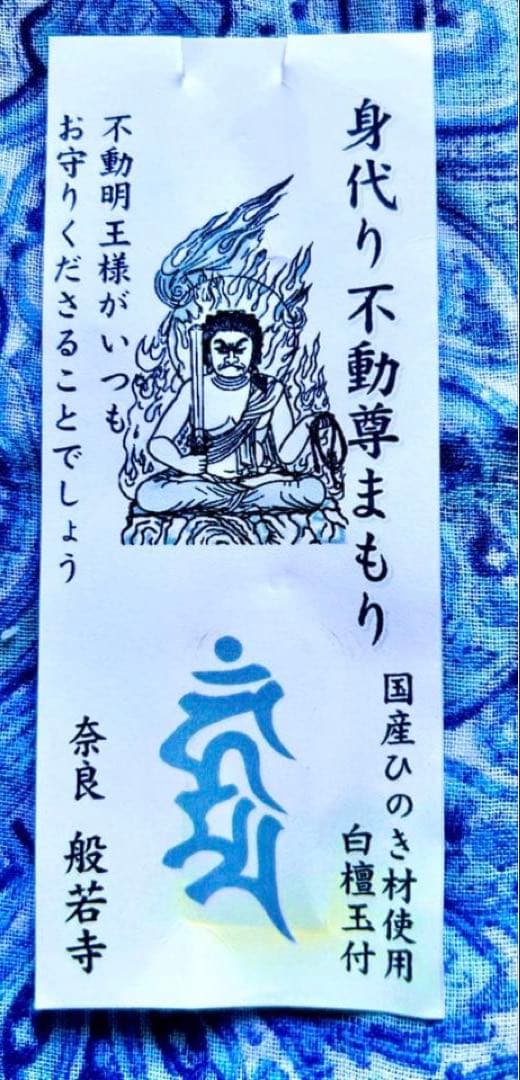 身代り不動尊まもり
国産ひのき材使用
白檀玉付
不動明王様がいつも
お守りくださることでしょう
奈良 般若寺